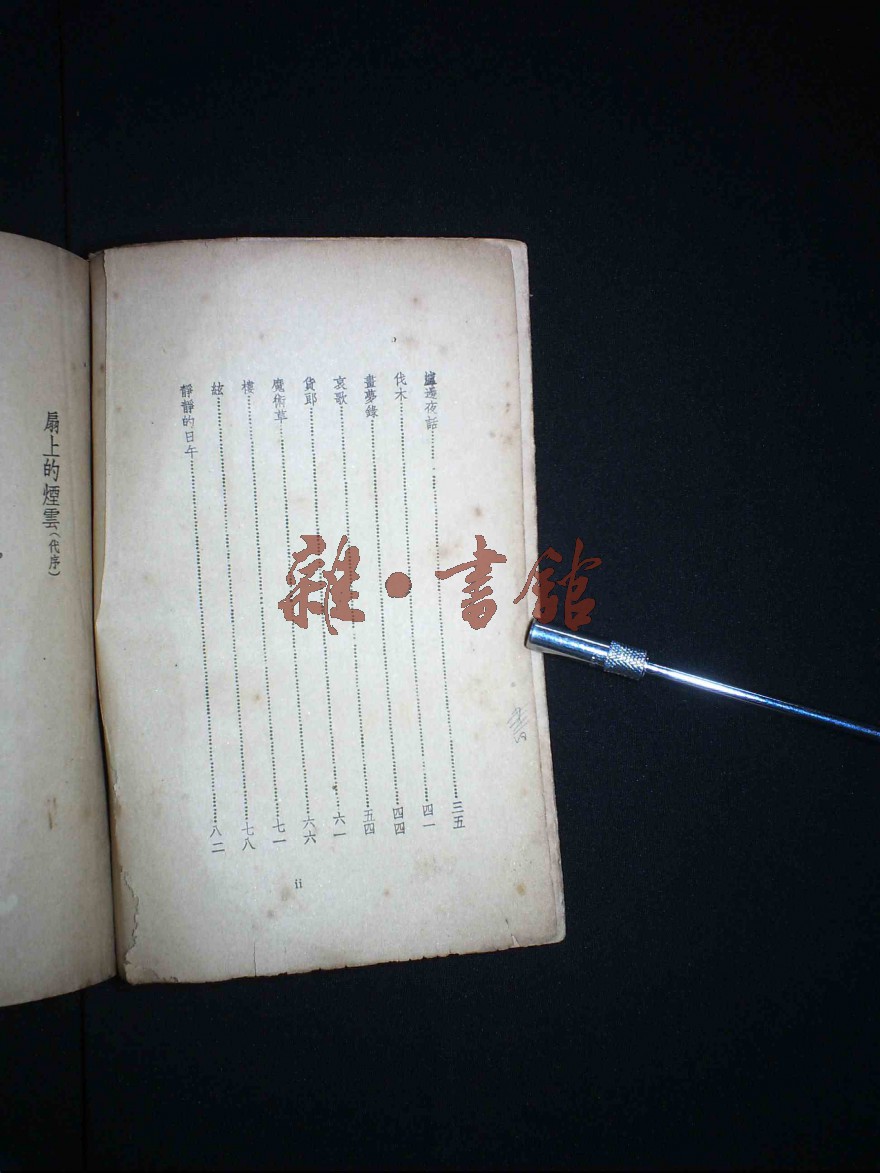 爐邊夜話……三五
伐木……四一
畫夢錄……四四
哀歌……五四
貨郎……六一
魔術草……六六
樓……七一
絃……七八
靜靜的日午……八二
ii
扇上的煙雲（代序）
雜·書館